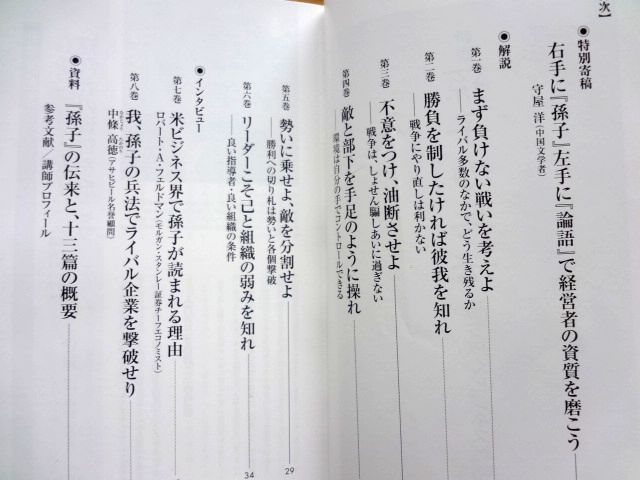 次】
◉特別寄稿
右手に『孫子』左手に『論語』で経営者の資質を磨こう
守屋 洋(中国文学者)
◉解説
第一巻
まず負けない戦いを考えよ
──ライバル多数のなかで、どう生き残るか
第二巻
勝負を制したければ彼我を知れ
──戦争にやり直しは利かない
第三巻
不意をつけ、油断させよ
──戦争は、しょせん騙しあいに過ぎない
第四巻
敵と部下を手足のように操れ
──環境は自分の手でコントロールできる
第五巻
勢いに乗せよ、敵を分割せよ
──勝利への切り札は勢いと各個撃破
29
第六巻
リーダーこそ己と組織の弱みを知れ
──良い指導者・良い組織の条件
34
◉インタビュー
第七巻
米ビジネス界で孫子が読まれる理由
ロバート・A・フェルドマン(モルガン・スタンレー証券チーフエコノミスト)
第八巻
我、孫子の兵法でライバル企業を撃破せり
中條 高徳(アサヒビール名誉顧問)
◉資料
『孫子』の伝来と、十三篇の概要
参考文献/講師プロフィール